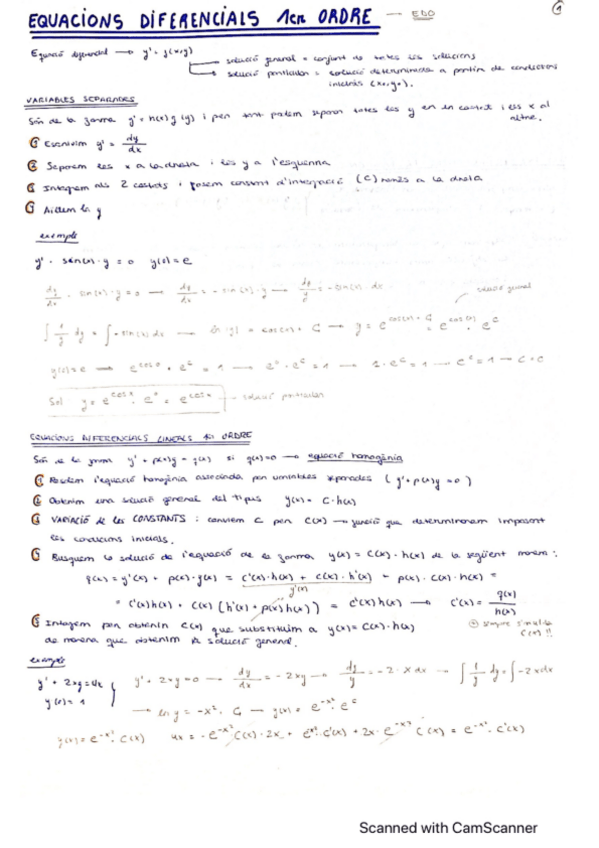 EQUACIONS DIFERENCIALS 1er ORDRE — EDO
1
Equació diferencial → y' = f(x,y)
solució general = conjunt de totes les solucions
solució particular = solució determinada a partir de condicions
inicials (x₀,y₀).
VARIABLES SEPARADES
Són de la forma y' = h(x)g(y) i per tant podem separar totes les y en un costat i les x al
altre.
① Escrivim y' = dy/dx
② Separem les x a la dreta i les y a l'esquerra
③ Integrem als 2 costats i posem constant d'integració (C) només a la dreta
④ Aïllem la y
exemple
y' + sin(x)·y = 0 y(0) = e
dy/dx + sin(x)·y = 0 → dy/dx = -sin(x)·y → dy/y = -sin(x)·dx
solució general
∫ 1/y dy = ∫ -sin(x) dx → ln|y| = cos(x) + C → y = e^(cos(x)+C) = e^(cos(x))·e^C
y(0) = e → e^(cos 0)·e^C = 1 → e^0·e^C = 1 → 1·e^C = 1 → e^C = 1 → C = 0
Sol y = e^(cos x)·e^0 = e^(cos x) → solució particular
EQUACIONS DIFERENCIALS LINEALS 1r ORDRE
Són de la forma y' + p(x)y = q(x) si q(x)=0 → equació homogènia
① Resolem l'equació homogènia associada per variables separades (y' + p(x)y = 0)
② Obtenim una solució general del tipus y(x) = C·h(x)
③ VARIACIÓ de les CONSTANTS : canviem C per C(x) → funció que determinarem imposant
les condicions inicials.
④ Busquem la solució de l'equació de la forma y(x) = C(x)·h(x) de la següent manera:
q(x) = y'(x) + p(x)·y(x) = C'(x)·h(x) + C(x)·h'(x) + p(x)·C(x)·h(x) =
y'(x)
= C'(x)h(x) + C(x)(h'(x) + p(x)h(x)) = C'(x)h(x) → C'(x) = q(x)/h(x)
⑤ Integrem per obtenir C(x) que substituim a y(x) = C(x)·h(x)
de manera que obtenim la solució general.
C(x) !!
exemple
y' + 2xy = 4x
y(0) = 1
y' + 2xy = 0 → dy/dx = -2xy → dy/y = -2·x dx → ∫ 1/y dy = ∫ -2x dx
→ ln y = -x² + C → y(x) = e^(-x²)·e^C
y(x) = e^(-x²)·C(x) 4x = -e^(-x²)·C(x)·2x + e^(-x²)·C'(x) + 2x·e^(-x²)·C(x) = e^(-x²)·C'(x)
Scanned with CamScanner